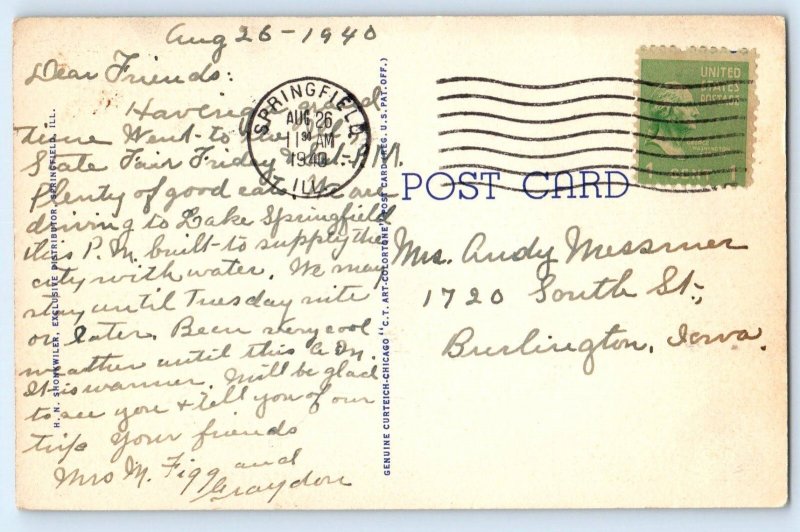 Aug 26 - 1940
Dear Friends:
Having a grand
time Went to the
State Fair Friday P.M.
Plenty of good eats. We are
driving to Lake Springfield
this P.M. built to supply the
city with water. We may
stay until Tuesday nite
or later. Been very cool
weather until this A.M.
It is warmer. Will be glad
to see you + tell you of our
trip Your friends
Mrs M. Figg and
Graydon
H. N. SHONKWILER, EXCLUSIVE DISTRIBUTOR, SPRINGFIELD, ILL.
GENUINE CURTEICH-CHICAGO "C.T. ART-COLORTONE" POST CARD (REG. U.S. PAT. OFF.)
SPRINGFIELD
AUG 26
11 30 AM
1940
ILL.
POST CARD
UNITED
STATES
POSTAGE
GEORGE WASHINGTON
1 CENT 1
Mrs. Andy Messmer
1720 South St.,
Burlington, Iowa.